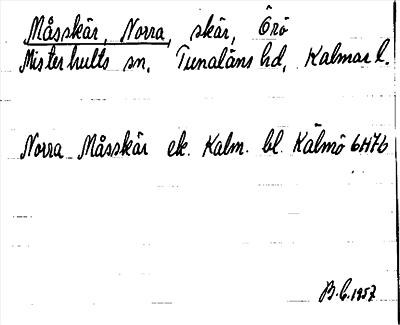 Måsskär, Norra, skär, Örö
Misterhults sn, Tunaläns hd, Kalmar l.
Norra Måsskär ek. Kalm. bl. Kälmö 6H7b
B.C. 1957